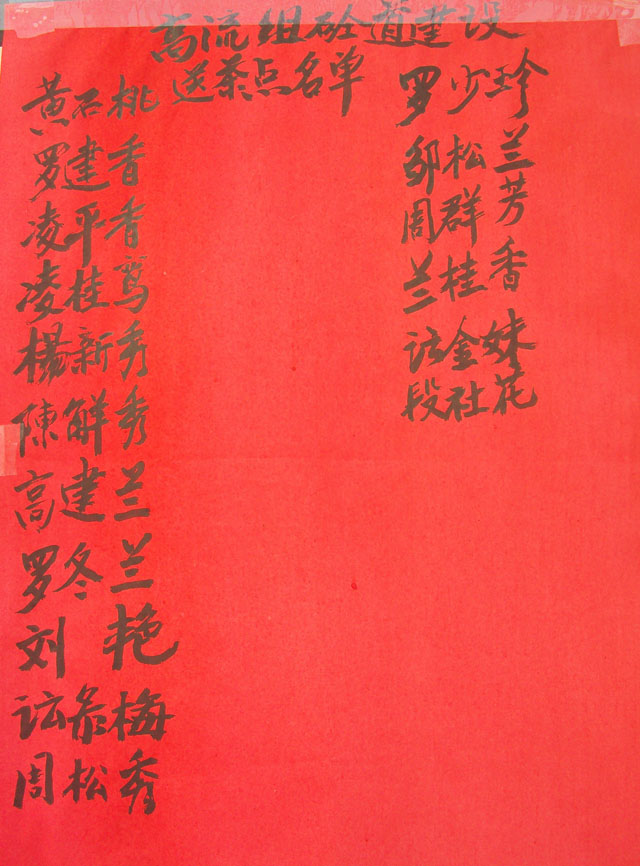 高流组砼道建设
送茶点名单
黄石桃
罗建香
凌平香
凌桂莺
杨新秀
陳解秀
高建兰
罗冬兰
刘艳
梅
周松秀
罗少珍
邹松兰
周群芳
兰桂香
金妹
段社花